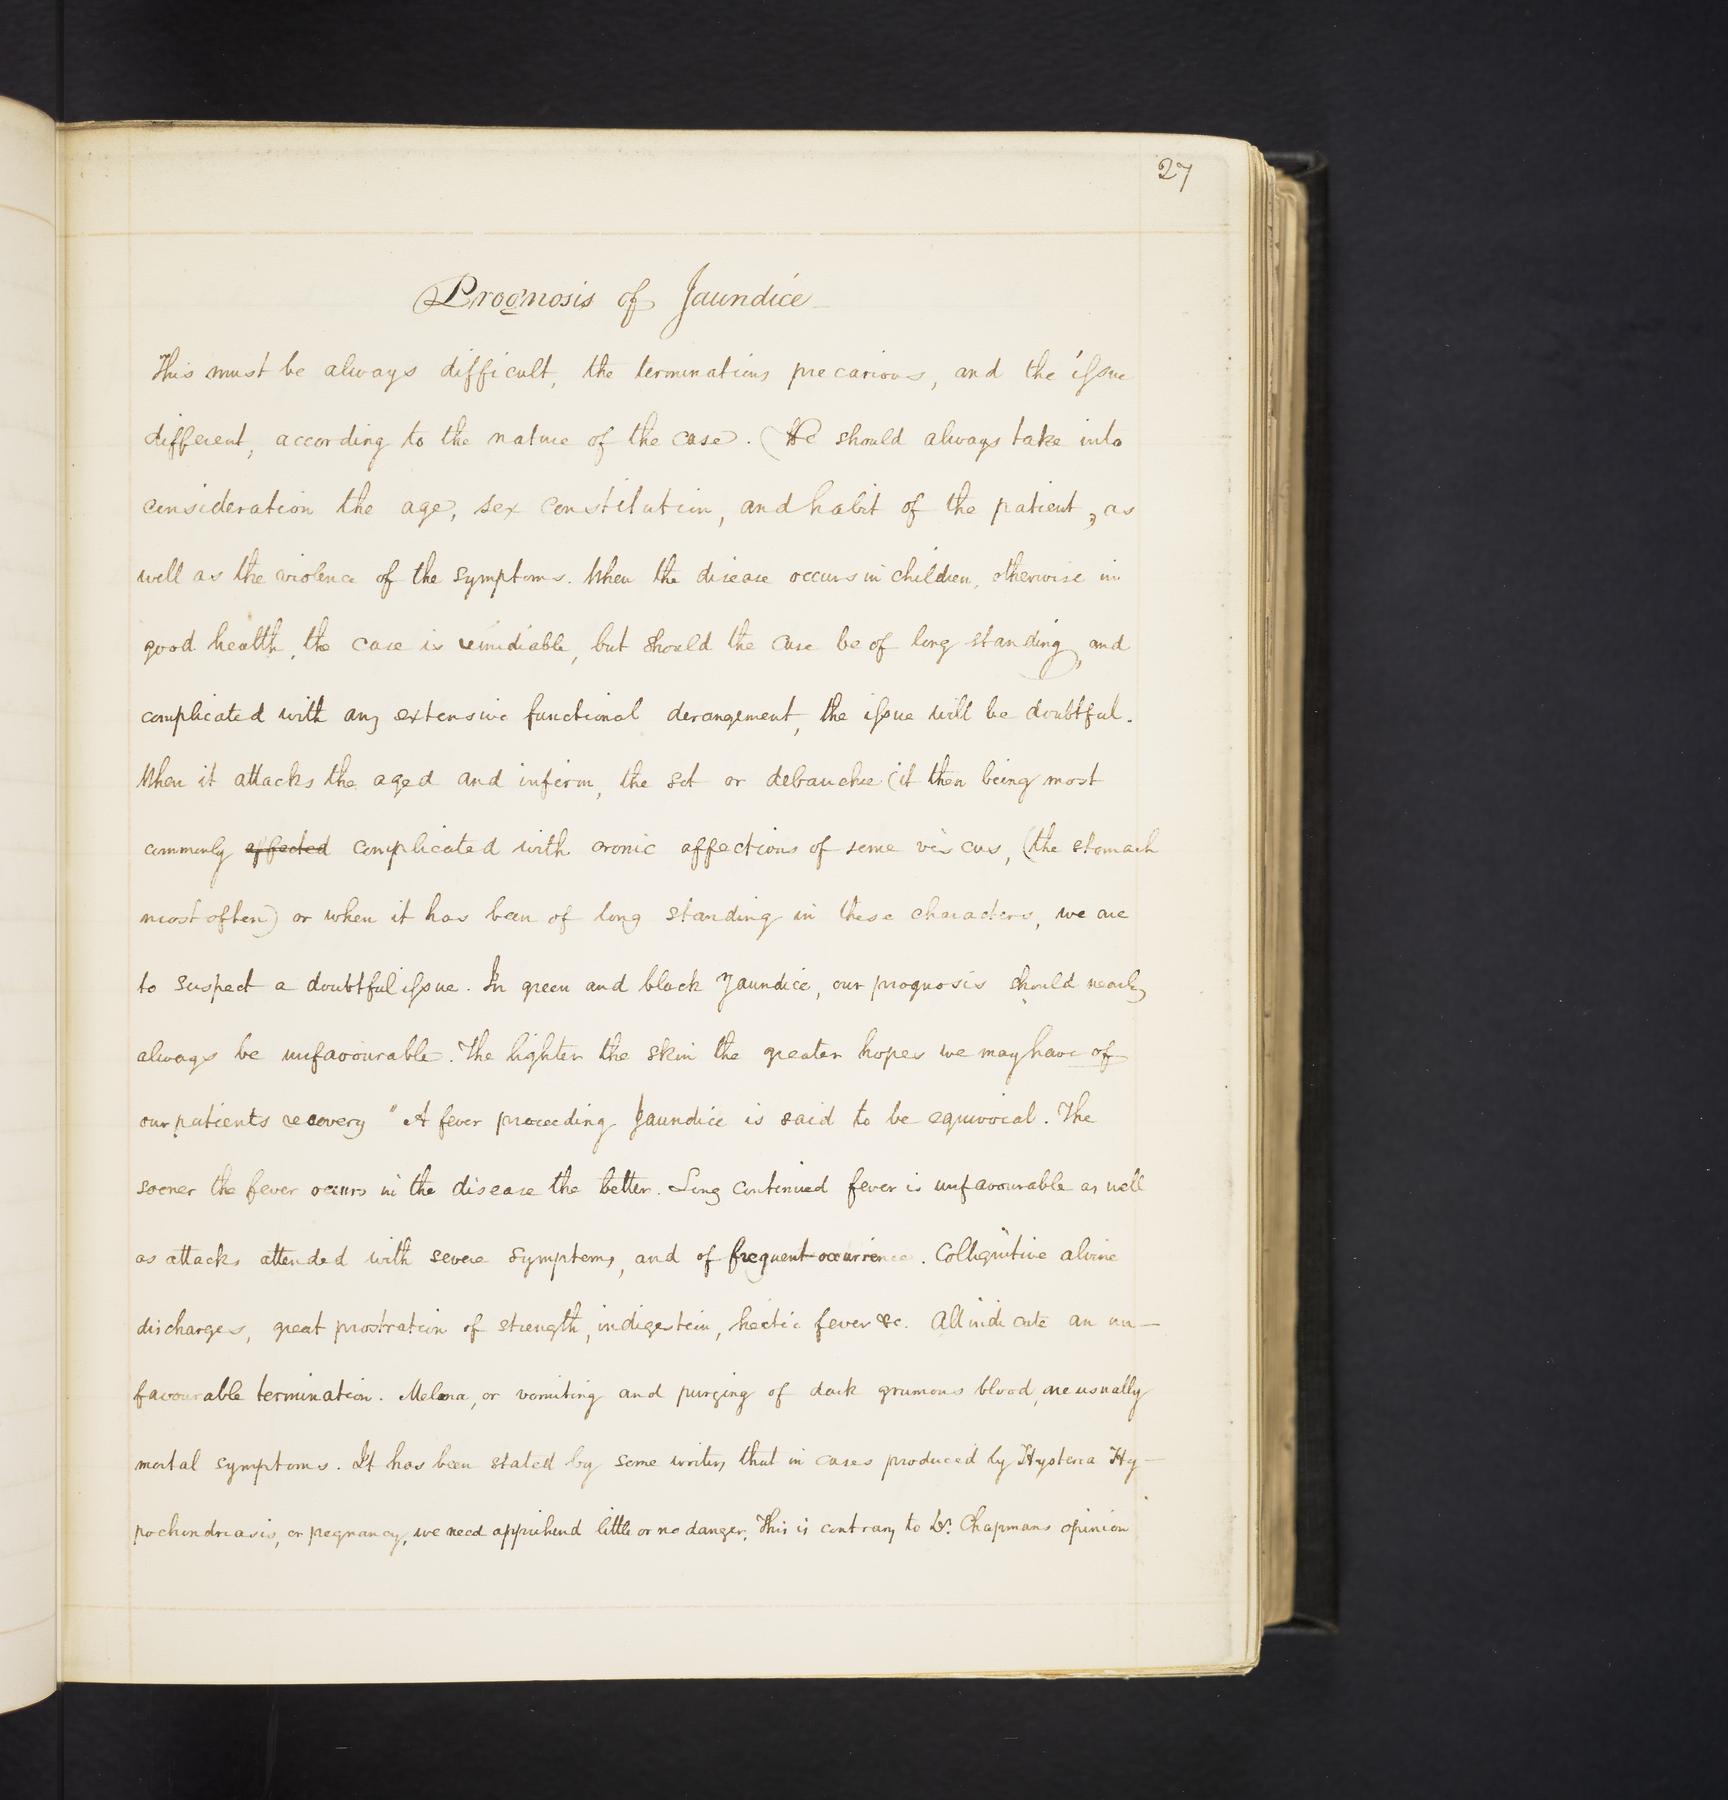 27
Prognosis of Jaundice
This must be always difficult, the terminations precarious, and the issue
different, according to the nature of the case. We should always take into
consideration the age, sex constitution, and habit of the patient, as
well as the violence of the symptoms. When the disease occurs in children, otherwise in
good health, the case is remidiable, but should the case be of long standing, and
complicated with any extensive functional derangement, the issue will be doubtful.
When it attacks the aged and infirm, the sot or debauchee (it then being most
commonly affected complicated with cronic affections of some viscus, (the stomach
most often) or when it has been of long standing in these characters, we are
to suspect a doubtful issue. In green and black Jaundice, our prognosis should nearly
always be unfavourable. The lighter the skin the greater hopes we may have of
our patients recovery " A fever proceeding Jaundice is said to be equivocal. The
sooner the fever occurs in the disease the better. Long continued fever is unfavourable as well
as attacks attended with severe symptoms, and of frequent occurrence. Colliquitive alvine
discharges, great prostration of strength, indigestion, hectic fever &c. All indicate an un-
favourable termination. Melena, or vomiting and purging of dark grumous blood, are usually
mortal symptoms. It has been stated by some writers that in cases produced by Hysteria Hy-
pochondriasis, or pregnancy, we need apprehend little or no danger. This is contrary to Dr. Chapmans opinion